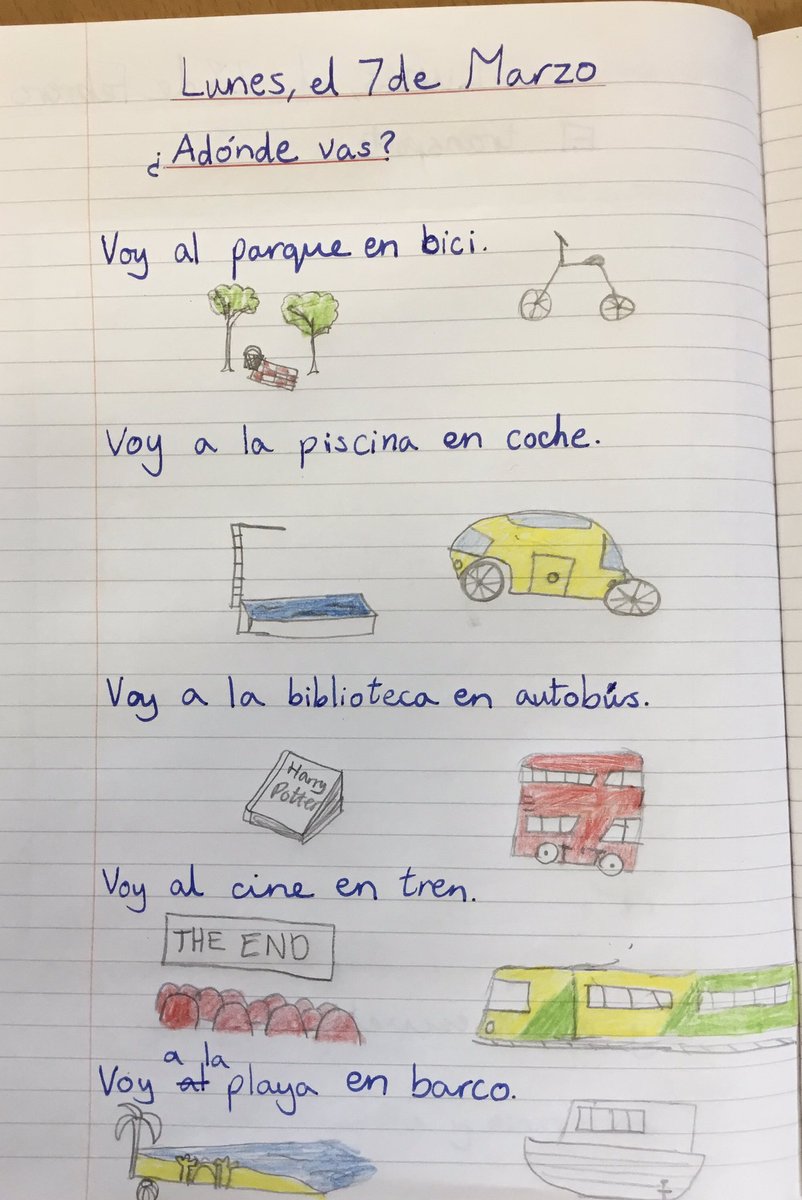 Lunes, el 7 de Marzo
¿Adónde vas?
Voy al parque en bici.
Voy a la piscina en coche.
Voy a la biblioteca en autobús.
Harry
Potter
Voy al cine en tren.
THE END
a la
Voy al playa en barco.